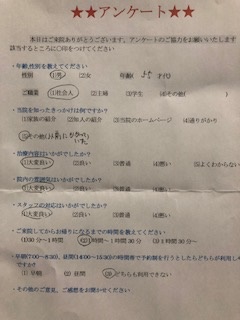 ★★アンケート★★
本日はご来院ありがとうございます。アンケートのご協力をお願いいたします
該当するところに○印をつけてください
・年齢,性別を教えてください
性別 (1)男 (2)女 年齢( 55 才代)
ご職業 (1)社会人 (2)主婦 (3)学生 (4)その他(
・当院を知ったきっかけは何ですか?
(1)家族の紹介 (2)知人の紹介 (3)当院のホームページ (4)通りがかり
(5)その他(以前にかかっていた
・治療内容はいかがでしたか?
(1)大変良い (2)良い (3)普通 (4)悪い (5)よくわからない
・院内の雰囲気はいかがでしたか?
(1)大変良い (2)良い (3)普通 (4)悪い
・スタッフの対応はいかがでしたか?
(1)大変良い (2)良い (3)普通 (4)悪い
・ご来院してからお帰りになるまでの時間を教えてください
(1)30分~1時間 (2)1時間~1時間30分 (3)1時間30分~
・早朝(7:00~8:30),昼間(14:00~15:30)の時間帯で予約制を行うとしたらどちらが利用し
やすいですか?
(1)早朝 (2)昼間 (3)どちらも利用できない
・その他のご意見、ご感想をお聞かせください